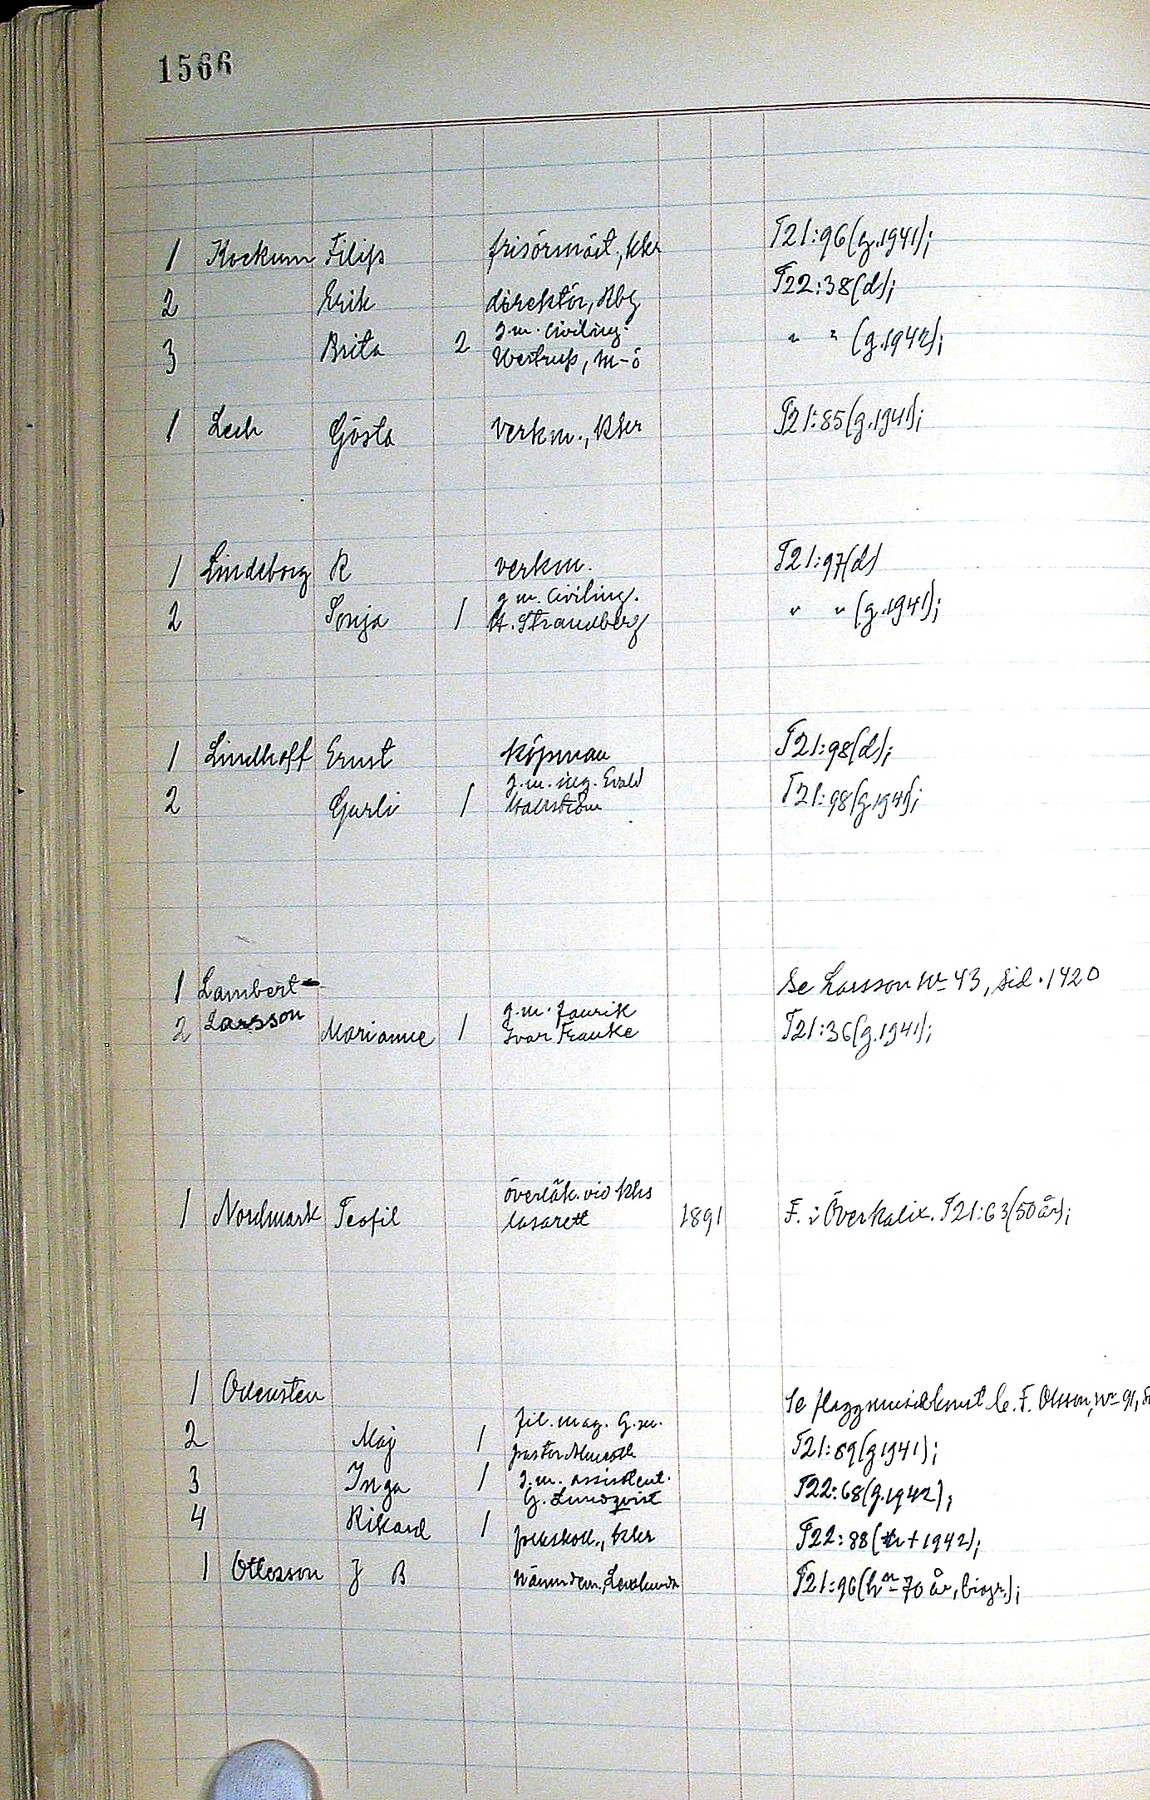 1566
1 Kockum Filip frisörmäst., Kkr T21:96(g.1941);
2 Erik direktör, Rbg T22:38(d);
g.m. civiling.
3 Brita 2 Westrup, M-ö " " (g.1942);
1 Lech Gösta verkm., Kkr T21:85(g.1941);
1 Lindeborg R verkm. T21:97(d)
g.m. civiling.
2 Sonja 1 H. Strandberg " " (g.1941);
1 Lindhoff Ernst köpman T21:98(d);
g.m. ing. Evald
2 Gurli 1 T21:98(g.1941);
1 Lambert- Se Larsson Nr 43, sid. 1420
g.m.
2 Larsson Marianne 1 Ivar Franke T21:36(g.1941);
överläk. vid Khs
1 Nordmark Teofil lasarett 1891 F. i Överkalix. T21:63(50 år);
1 Odensten Se flaggmusikknst C. F. Olsson, Nr 91,
fil. mag. G.m.
2 Maj 1 pastor T21:89(g.1941);
g.m. assistent.
3 Inga 1 G. Lundqvist T22:68(g.1942);
4 Rikard 1 folkskoll., Kkr T22:88( + 1942);
1 Ottosson J B T21:96( 70 år, biogr.);